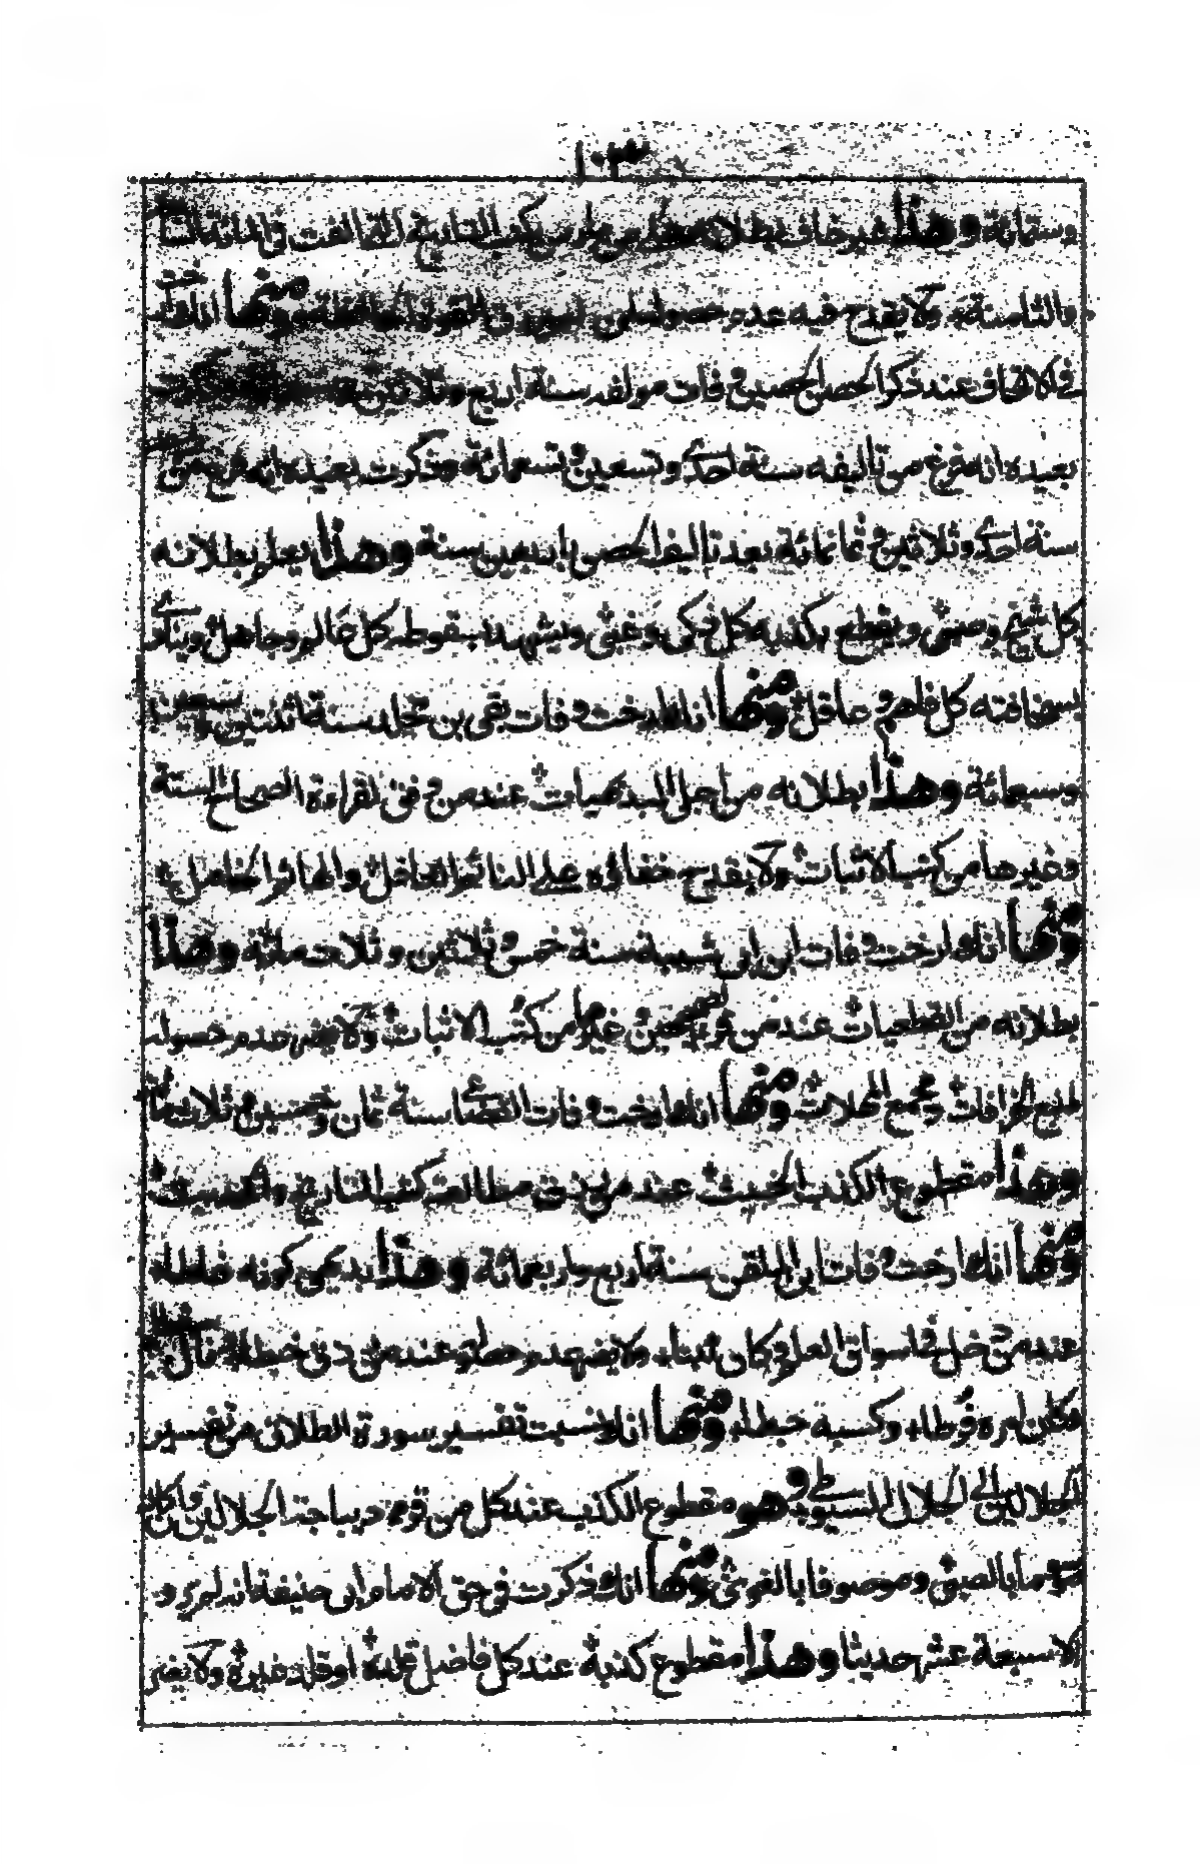 ١٠٣
وستمائة وهذا غير خاف بطلانه على من طالع كتب التاريخ التي الفت في المائة
والثامنة ولا يقدح فيه عدم حصوله لمن ومنها انك
في الاتحاف عند ذكر الحصن الحصين وفات مولفه سنة اربع وثلاثين
بعيده انه فرغ من تاليفه سنة احدى وتسعين وتسعمائة وذكرت بعيده انه فرغ من
سنة احدى وثلاثين وثمانمائة بعد تاليف الحصن باربعين سنة وهذا يعلم بطلانه
كل شيخ وصبي ويقطع بكذبه كل ذكي وغبي ويشهد بسقوطه كل عالم وجاهل وينادي
بسخافته كل فاهم وعاقل ومنها انك ارخت وفات بقي بن مخلد سنة مائتين وسبعين
وسبعمائة وهذا بطلانه من اجل البديهيات عند من وفق لقراءة الصحاح الستة
وغيرها من كتب الاثبات ولا يقدح خفاؤه على النائم الغافل والهائم الخامل
ومنها انك ارخت وفات ابن ابي شيبة سنة خمس وثلاثين وثلاث مائة وهذا
بطلانه من القطعيات عند من قرء الصحيحين وغيرهما من كتب الاثبات ولا يضر عدم حصوله
لمنبع الخرافات ومجمع المهملات ومنها انك ارخت وفات القضاعي سنة ثمان وخمسين وثلاثمائة
وهذا مقطوع الكذب الخبيث عند من رزق مطالعة كتب التاريخ والحديث
ومنها انك ارخت وفات ابن الملقن سنة اربع واربعمائة وهذا بديهي كونه غلطا
عند من دخل في اسواق العلم وكان ولا يضر عدم عند من
ومنها انك نسبت تفسير سورة الطلاق من تفسير
الجلالين الى الجلال السيوطي وهو مقطوع الكذب عند كل من قرء ديباجة الجلالين وان كان
موسوما بالصبي وموصوفا بالغوي ومنها انك ذكرت في حق الامام ابي حنيفة انه لم يرو
الا سبعة عشر حديثا وهذا مقطوع كذبه عند كل فاضل قلبه او قلد غيره ولا يضر